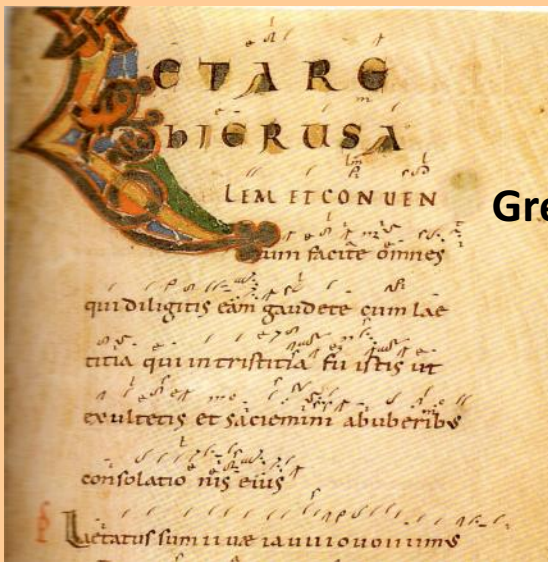 LETARE
hIERUSA
LEM ET CONUEN
Gre
tum facite omnes
qui diligitis eam gaudete cum lae
titia qui in tristitia fu istis ut
exultetis et saciemini ab uberibus
consolatio nis eius
Laetatus sum